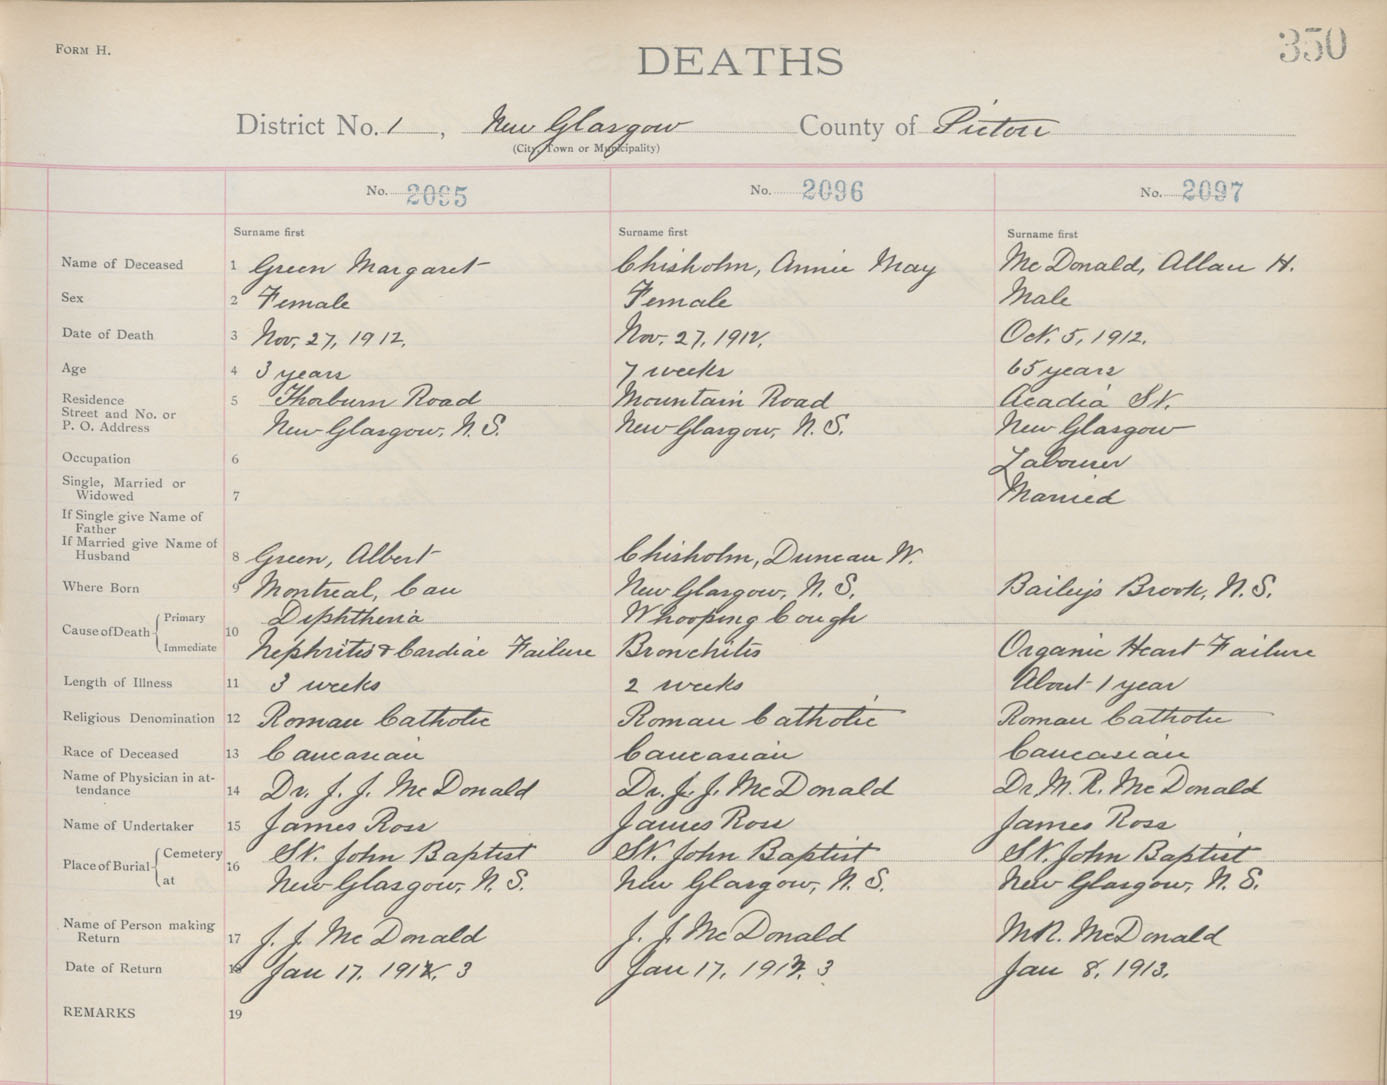 FORM H.
350
DEATHS
District No. 1, New Glasgow County of Pictou
(City, Town or Municipality)
No. 2095 No. 2096 No. 2097
Surname first Surname first Surname first
Name of Deceased 1 Green Margaret Chisholm, Annie May McDonald, Allan H.
Sex 2 Female Female Male
Date of Death 3 Nov. 27, 1912. Nov. 27, 1912. Oct. 5, 1912.
Age 4 3 years 7 weeks 65 years
Residence 5 Thorburn Road Mountain Road Acadia St.
Street and No. or
P. O. Address New Glasgow, N.S. New Glasgow, N.S. New Glasgow
Occupation 6 Labourer
Single, Married or
Widowed 7 Married
If Single give Name of
Father
If Married give Name of
Husband 8 Green, Albert Chisholm, Duncan W.
Where Born 9 Montreal, Can New Glasgow, N.S. Bailey's Brook, N.S.
Cause of Death Primary 10 Diphtheria Whooping Cough
Immediate Nephritis & Cardiac Failure Bronchitis Organic Heart Failure
Length of Illness 11 3 weeks 2 weeks About 1 year
Religious Denomination 12 Roman Catholic Roman Catholic Roman Catholic
Race of Deceased 13 Caucasian Caucasian Caucasian
Name of Physician in at-
tendance 14 Dr. J. J. McDonald Dr. J. J. McDonald Dr. M. R. McDonald
Name of Undertaker 15 James Ross James Ross James Ross
Place of Burial Cemetery 16 St. John Baptist St. John Baptist St. John Baptist
at New Glasgow, N.S. New Glasgow, N.S. New Glasgow, N.S.
Name of Person making
Return 17 J. J. McDonald J. J. McDonald M.R. McDonald
Date of Return 18 Jan 17, 1912. 3 Jan 17, 1912. 3 Jan 8, 1913.
REMARKS 19